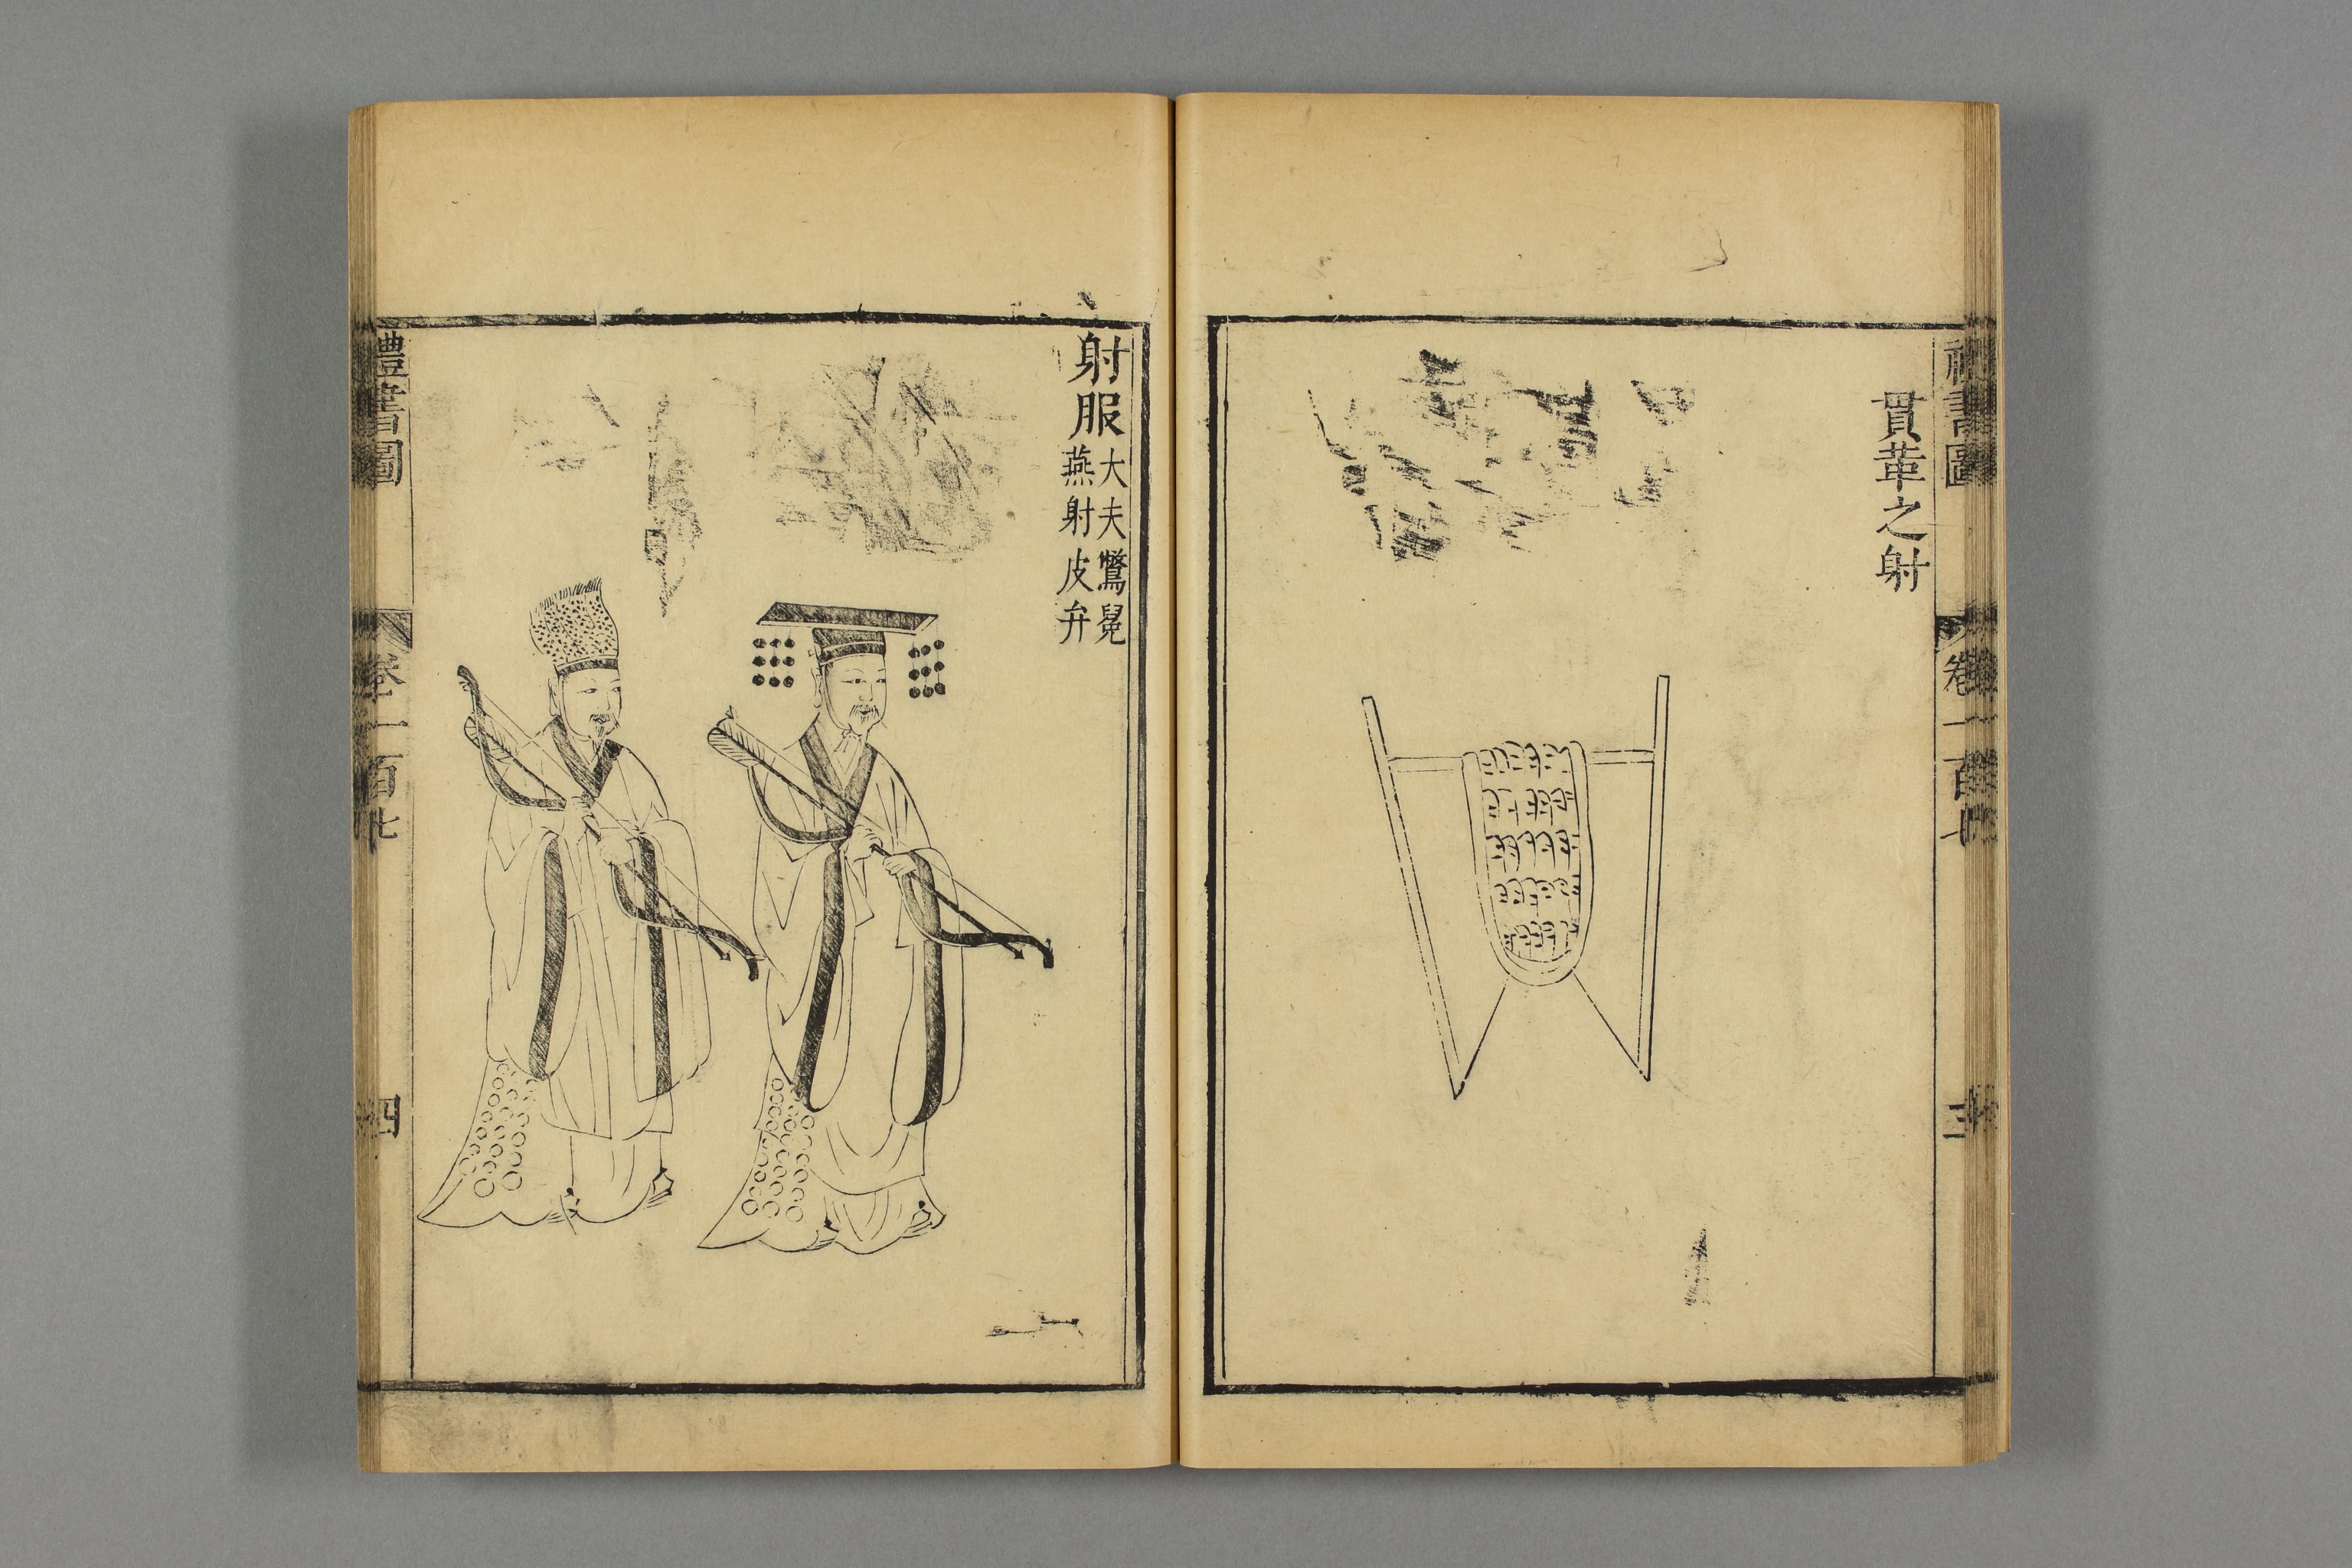 禮書圖 卷一百七 三
貫革之射
射服
大夫鷩冕
燕射皮弁
禮書圖 卷一百七 四